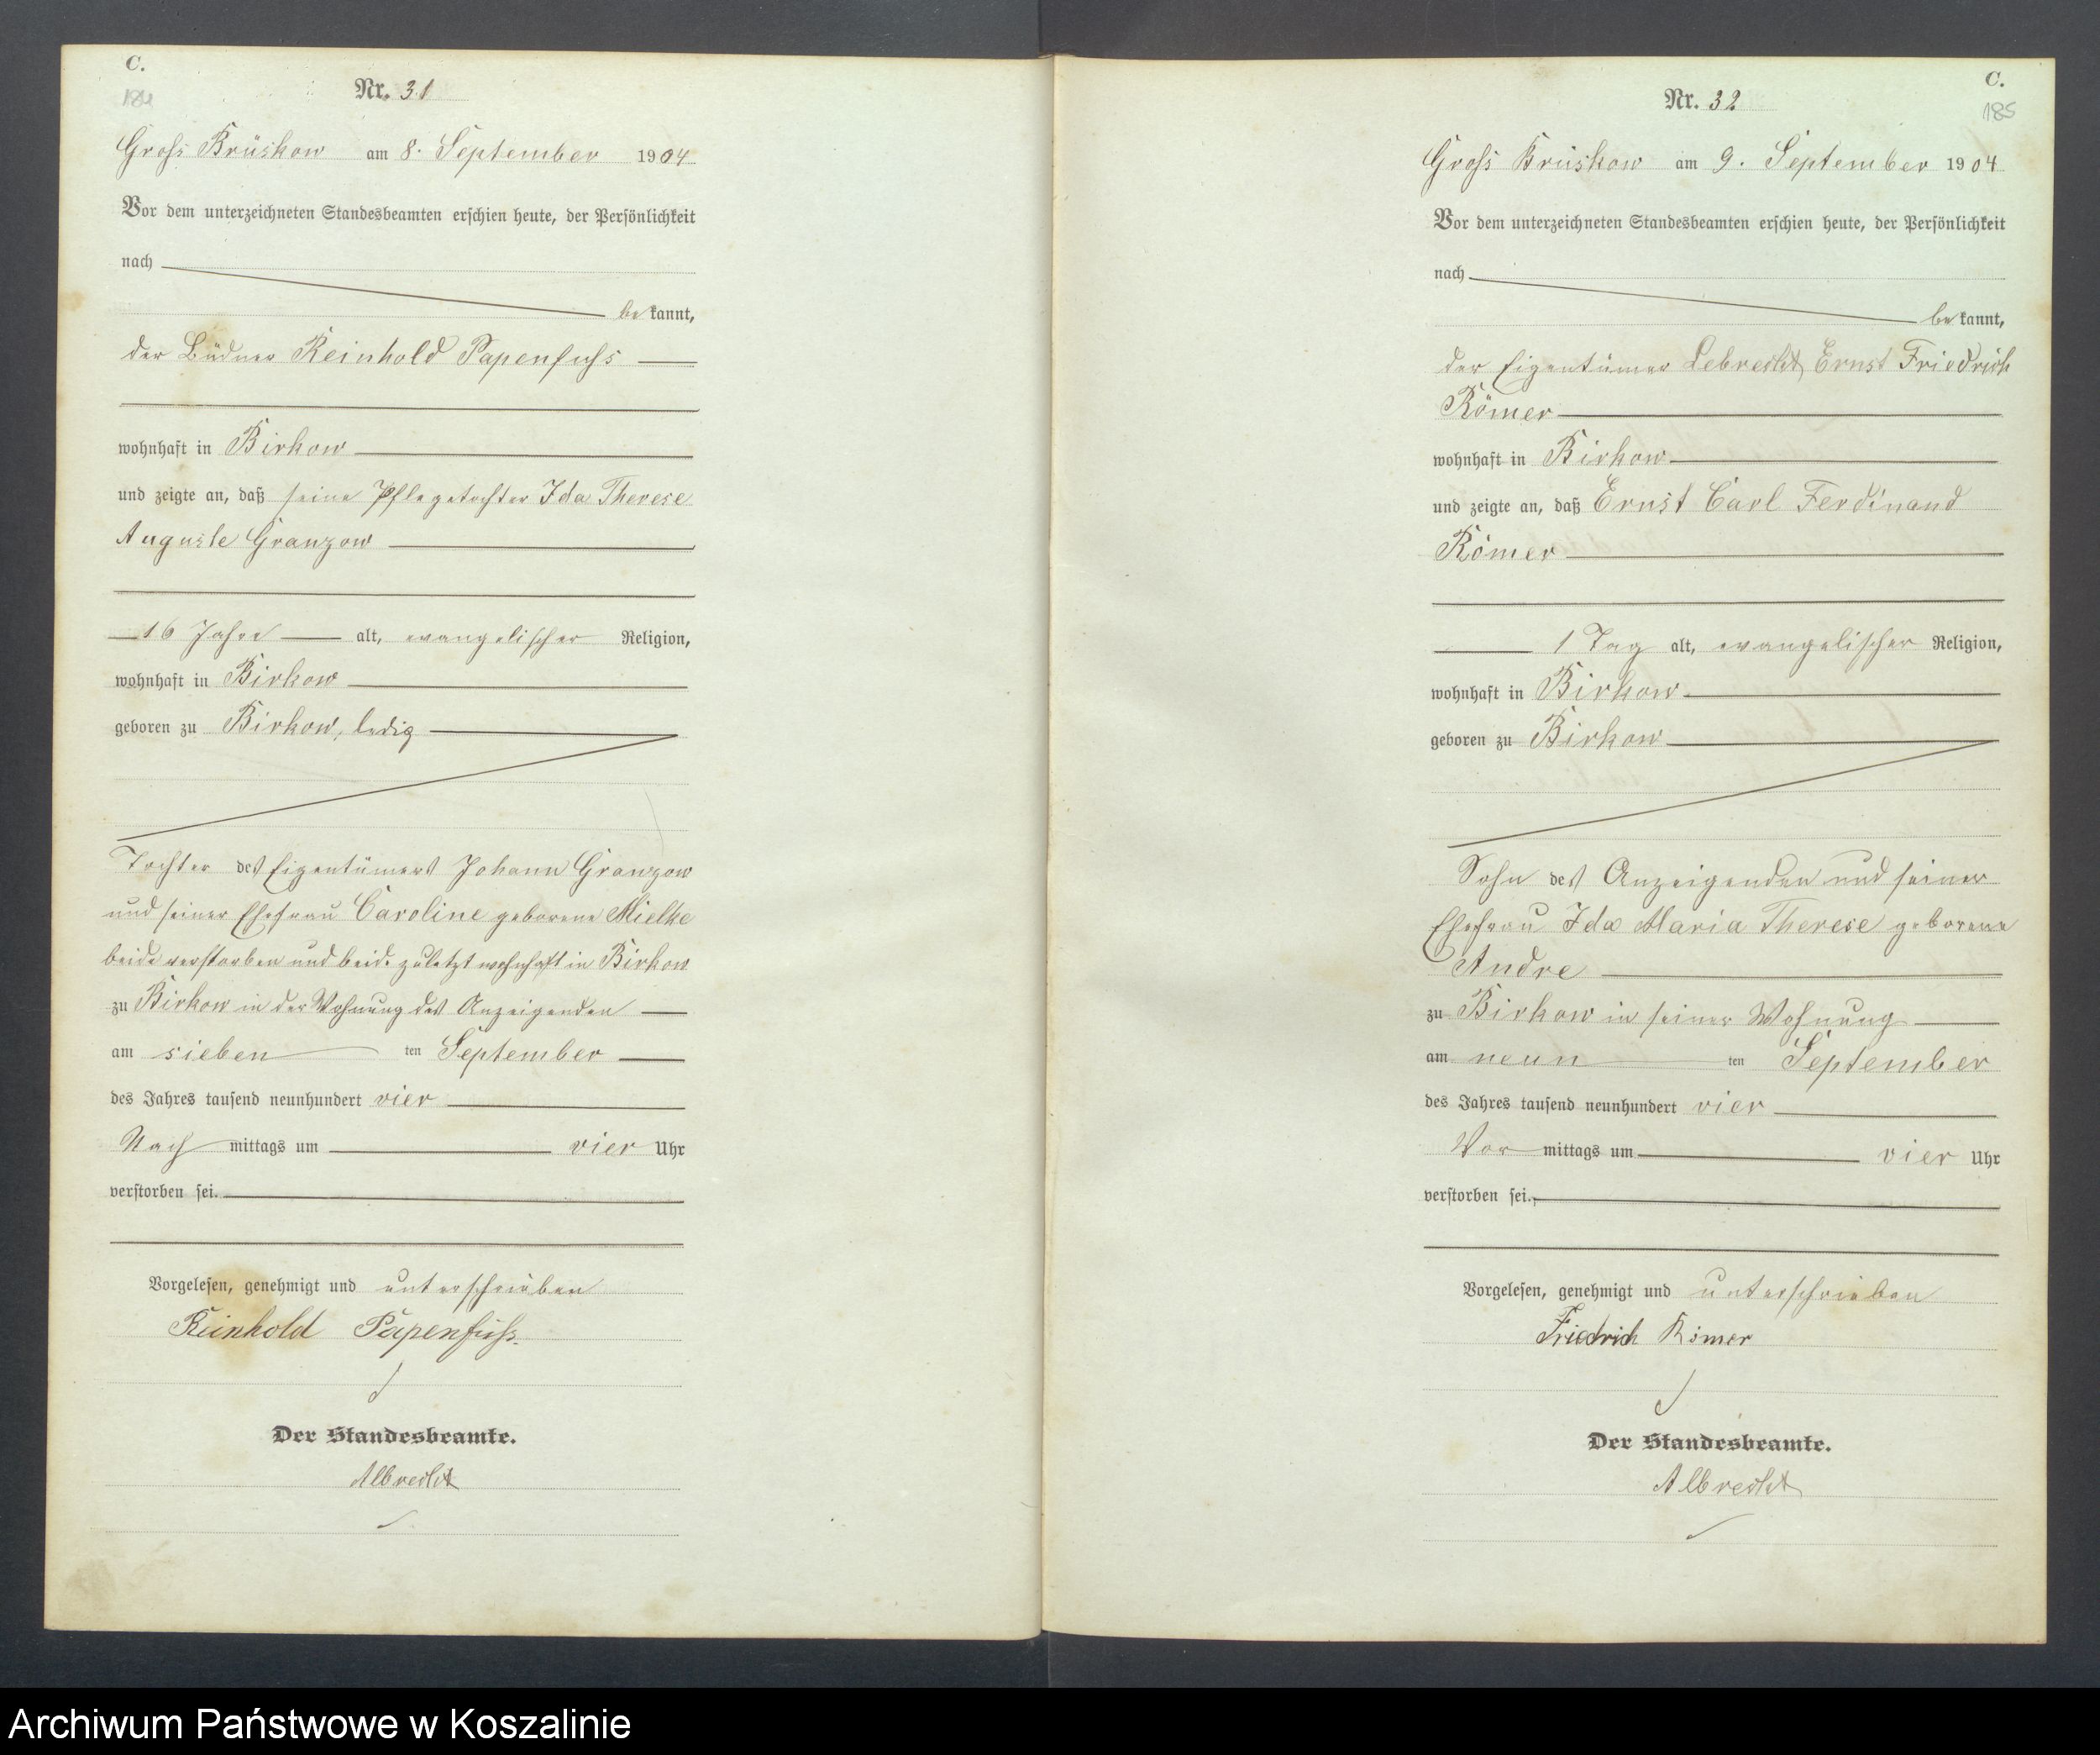 C.
184
Nr. 31
Gross Brüskow am 8. September 1904
Vor dem unterzeichneten Standesbeamten erschien heute, der Persönlichkeit
nach
bekannt,
der Büdner Reinhold Papenfuss
wohnhaft in Birkow
und zeigte an, daß seine Pflegetochter Ida Therese
Auguste Granzow
16 Jahre alt, evangelischer Religion,
wohnhaft in Birkow
geboren zu Birkow, ledig
Tochter des Eigentümers Johann Granzow
und seiner Ehefrau Caroline geborene Mielke
beide verstorben und beide zuletzt wohnhaft in Birkow
zu Birkow in der Wohnung des Anzeigenden
am sieben ten September
des Jahres tausend neunhundert vier
Nach mittags um vier Uhr
verstorben sei.
Vorgelesen, genehmigt und unterschrieben
Reinhold Papenfuss.
Der Standesbeamte.
Albrecht
C.
185
Nr. 32
Gross Brüskow am 9. September 1904
Vor dem unterzeichneten Standesbeamten erschien heute, der Persönlichkeit
nach
bekannt,
der Eigentümer Lebrecht Ernst Friedrich
Römer
wohnhaft in Birkow
und zeigte an, daß Ernst Carl Ferdinand
Römer
1 Tag alt, evangelischer Religion,
wohnhaft in Birkow
geboren zu Birkow
Sohn des Anzeigenden und seiner
Ehefrau Ida Maria Therese geborene
Andre
zu Birkow in seiner Wohnung
am neun ten September
des Jahres tausend neunhundert vier
Vor mittags um vier Uhr
verstorben sei.
Vorgelesen, genehmigt und unterschrieben
Friedrich Römer
Der Standesbeamte.
Albrecht
Archiwum Państwowe w Koszalinie